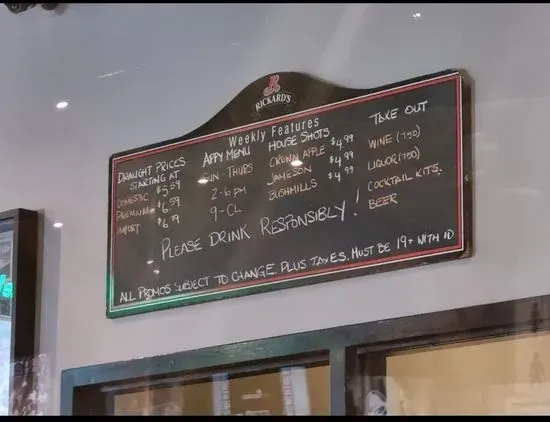 RICKARD'S
Weekly Features
DRAUGHT PRICES
STARTING AT
DOMESTIC $5.59
PREMIUM $6.59
IMPORT $6.79
APPY MENU
SUN - THURS
2-6 PM
9-CL
HOUSE SHOTS
CROWN APPLE $4.99
JAMESON $4.99
BUSHMILLS $4.99
TAKE OUT
WINE (750)
LIQUOR (750)
COCKTAIL KITS.
BEER
PLEASE DRINK RESPONSIBLY!
ALL PROMOS SUBJECT TO CHANGE. PLUS TAXES. MUST BE 19+ WITH ID